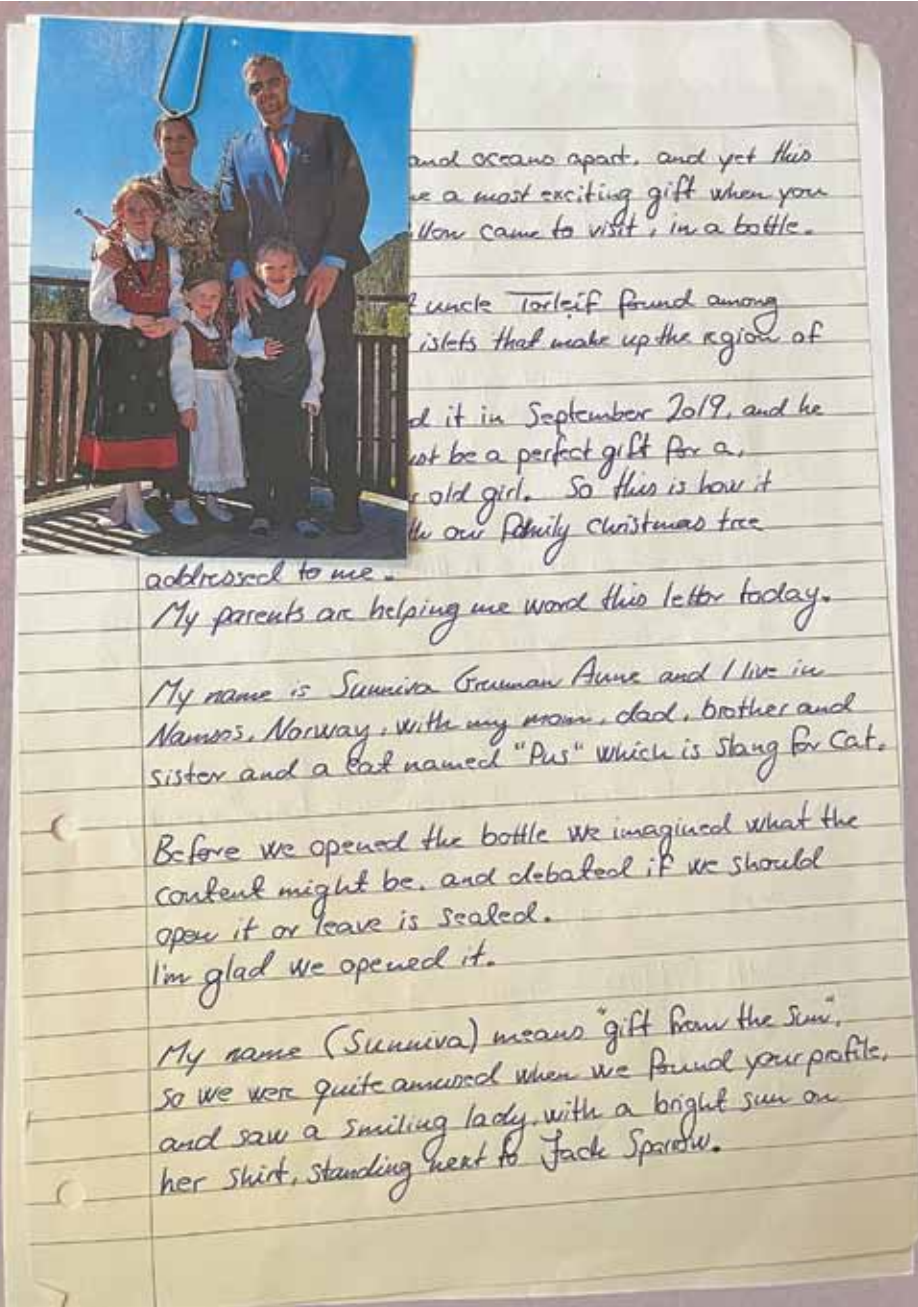 and oceans apart, and yet this
a most exciting gift when you
came to visit, in a bottle.
uncle Torleif found among
islets that make up the region of
it in September 2019, and he
be a perfect gift for a,
old girl. So this is how it
our family christmas tree
addressed to me.
My parents are helping me word this letter today.
My name is Sunniva Gruman Aune and I live in
Namsos, Norway, with my mom, dad, brother and
sister and a cat named "Pus" which is slang for Cat.
Before we opened the bottle we imagined what the
content might be, and debated if we should
open it or leave is sealed.
I'm glad we opened it.
My name (Sunniva) means "gift from the Sun",
so we were quite amused when we found your profile,
and saw a smiling lady, with a bright sun on
her shirt, standing next to Jack Sparrow.